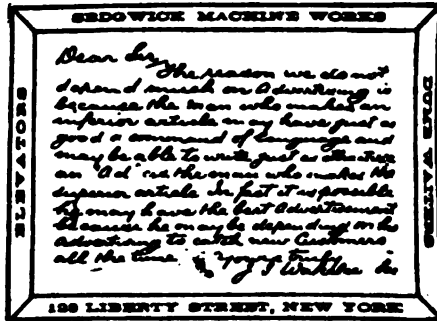 SEDGWICK MACHINE WORKS
ELEVATORS
Dear Sir,
The reason we do not
depend much on Advertising is
because the man who makes an
inferior article may have just as
good a command of Language and
may be able to write just as attractive
an "Ad" as the man who makes the
superior article In fact it is possible
he may have the best Advertisement
because he may be depending on his
Advertising to catch new Customers
all the time. Yours truly
DUMB WAITERS
128 LIBERTY STREET, NEW YORK